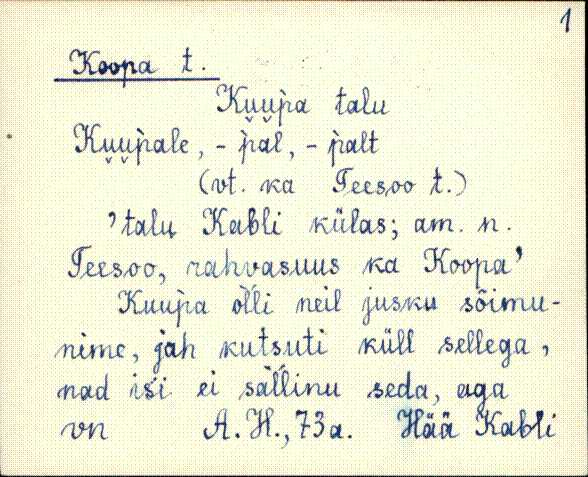 1
Koopa t.
Ku̬u̬pa talu
Ku̬u̬pale, -pal, -palt
(vt. ka Teesoo t.)
'talu Kabli külas; am. n.
Teesoo, rahvasuus ka Koopa'
Kuupa òlli neil jusku sõimu-
nime, jah kutsuti küll sellega,
nad isi ei sàllinu seda, aga
vn A. H., 73 a. Hää Kabli